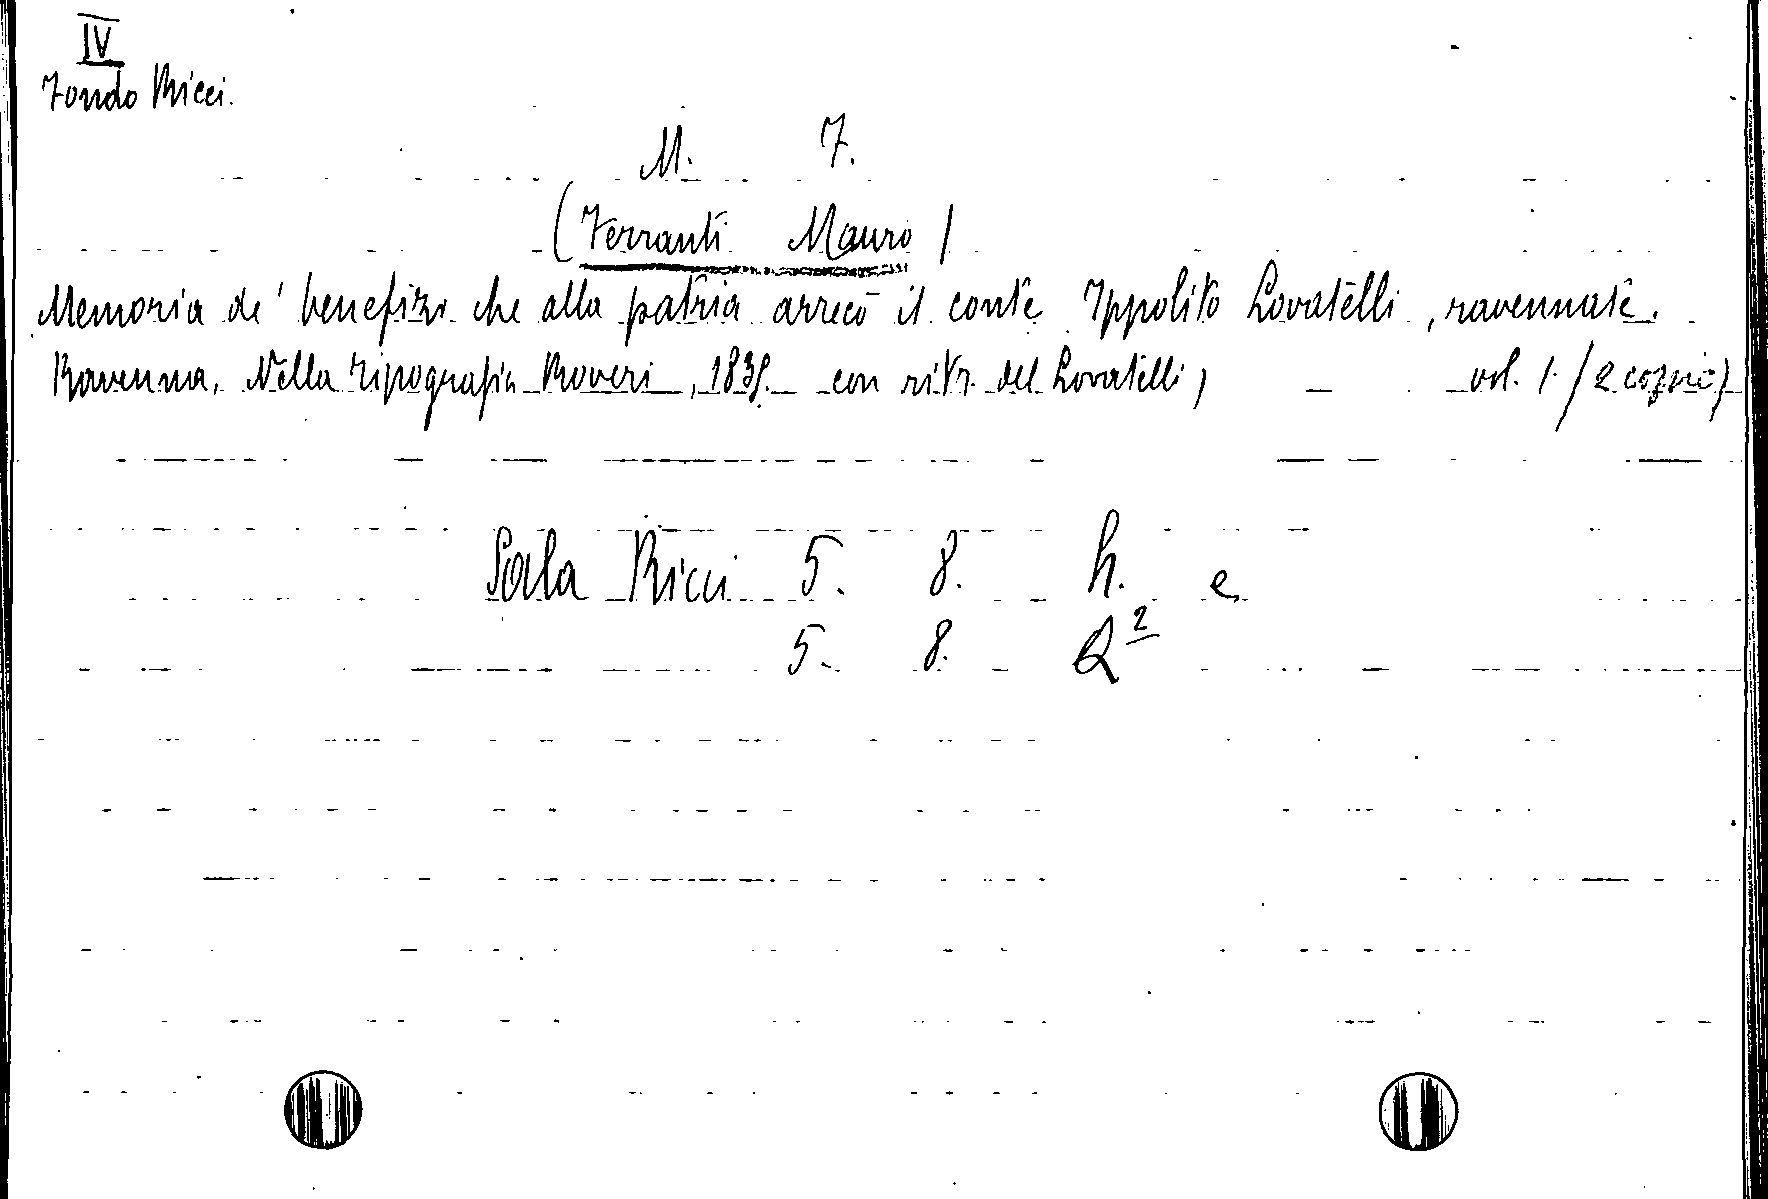 IV
Fondo Ricci.
M. F.
(Ferranti Mauro)
Memoria de' benefizi che alla patria arrecò il conte Ippolito Lovatelli, ravennate.
Ravenna, Nella tipografia Roveri, con ritr. del Lovatelli, vol. 1. (2 copie)
Sala Ricci 5. 8. h. e
5. 8. Q²